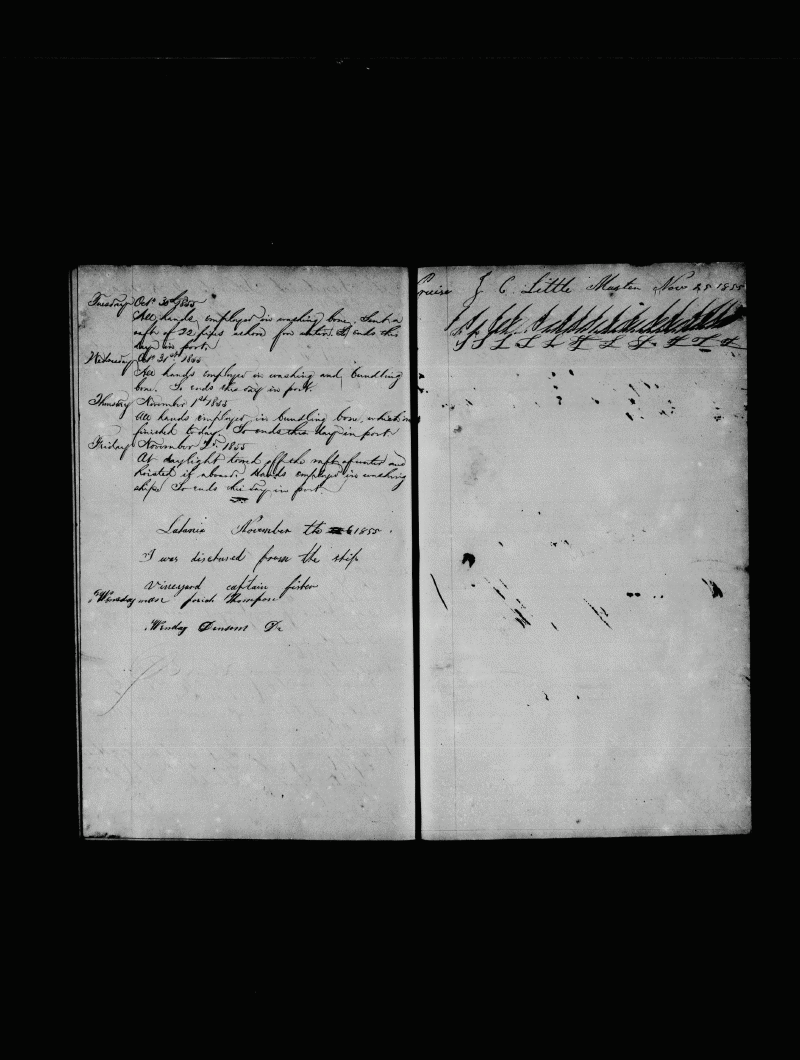 Tuesday Oct 30th 1855
All hands employed in washing bone. Sent a
raft of 22 pipes ashore for water. So ends this
day in port.
Wednesday Oct 31st 1855
All hands employed in washing and bundling
bone. So ends this day in port.
Thursday November 1st 1855
All hands employed in bundling bone, which
finished to day. So ends this day in port.
Friday November 2d. 1855
At daylight towed off the raft of water and
hoisted it aboard. Hands employed in washing
ship. So ends this day in port.
November th 6 1855.
I was discharsed from the ship
Vineyard captain fisher
Thompson
Cruise J. C. Little Master Nov 25 1855